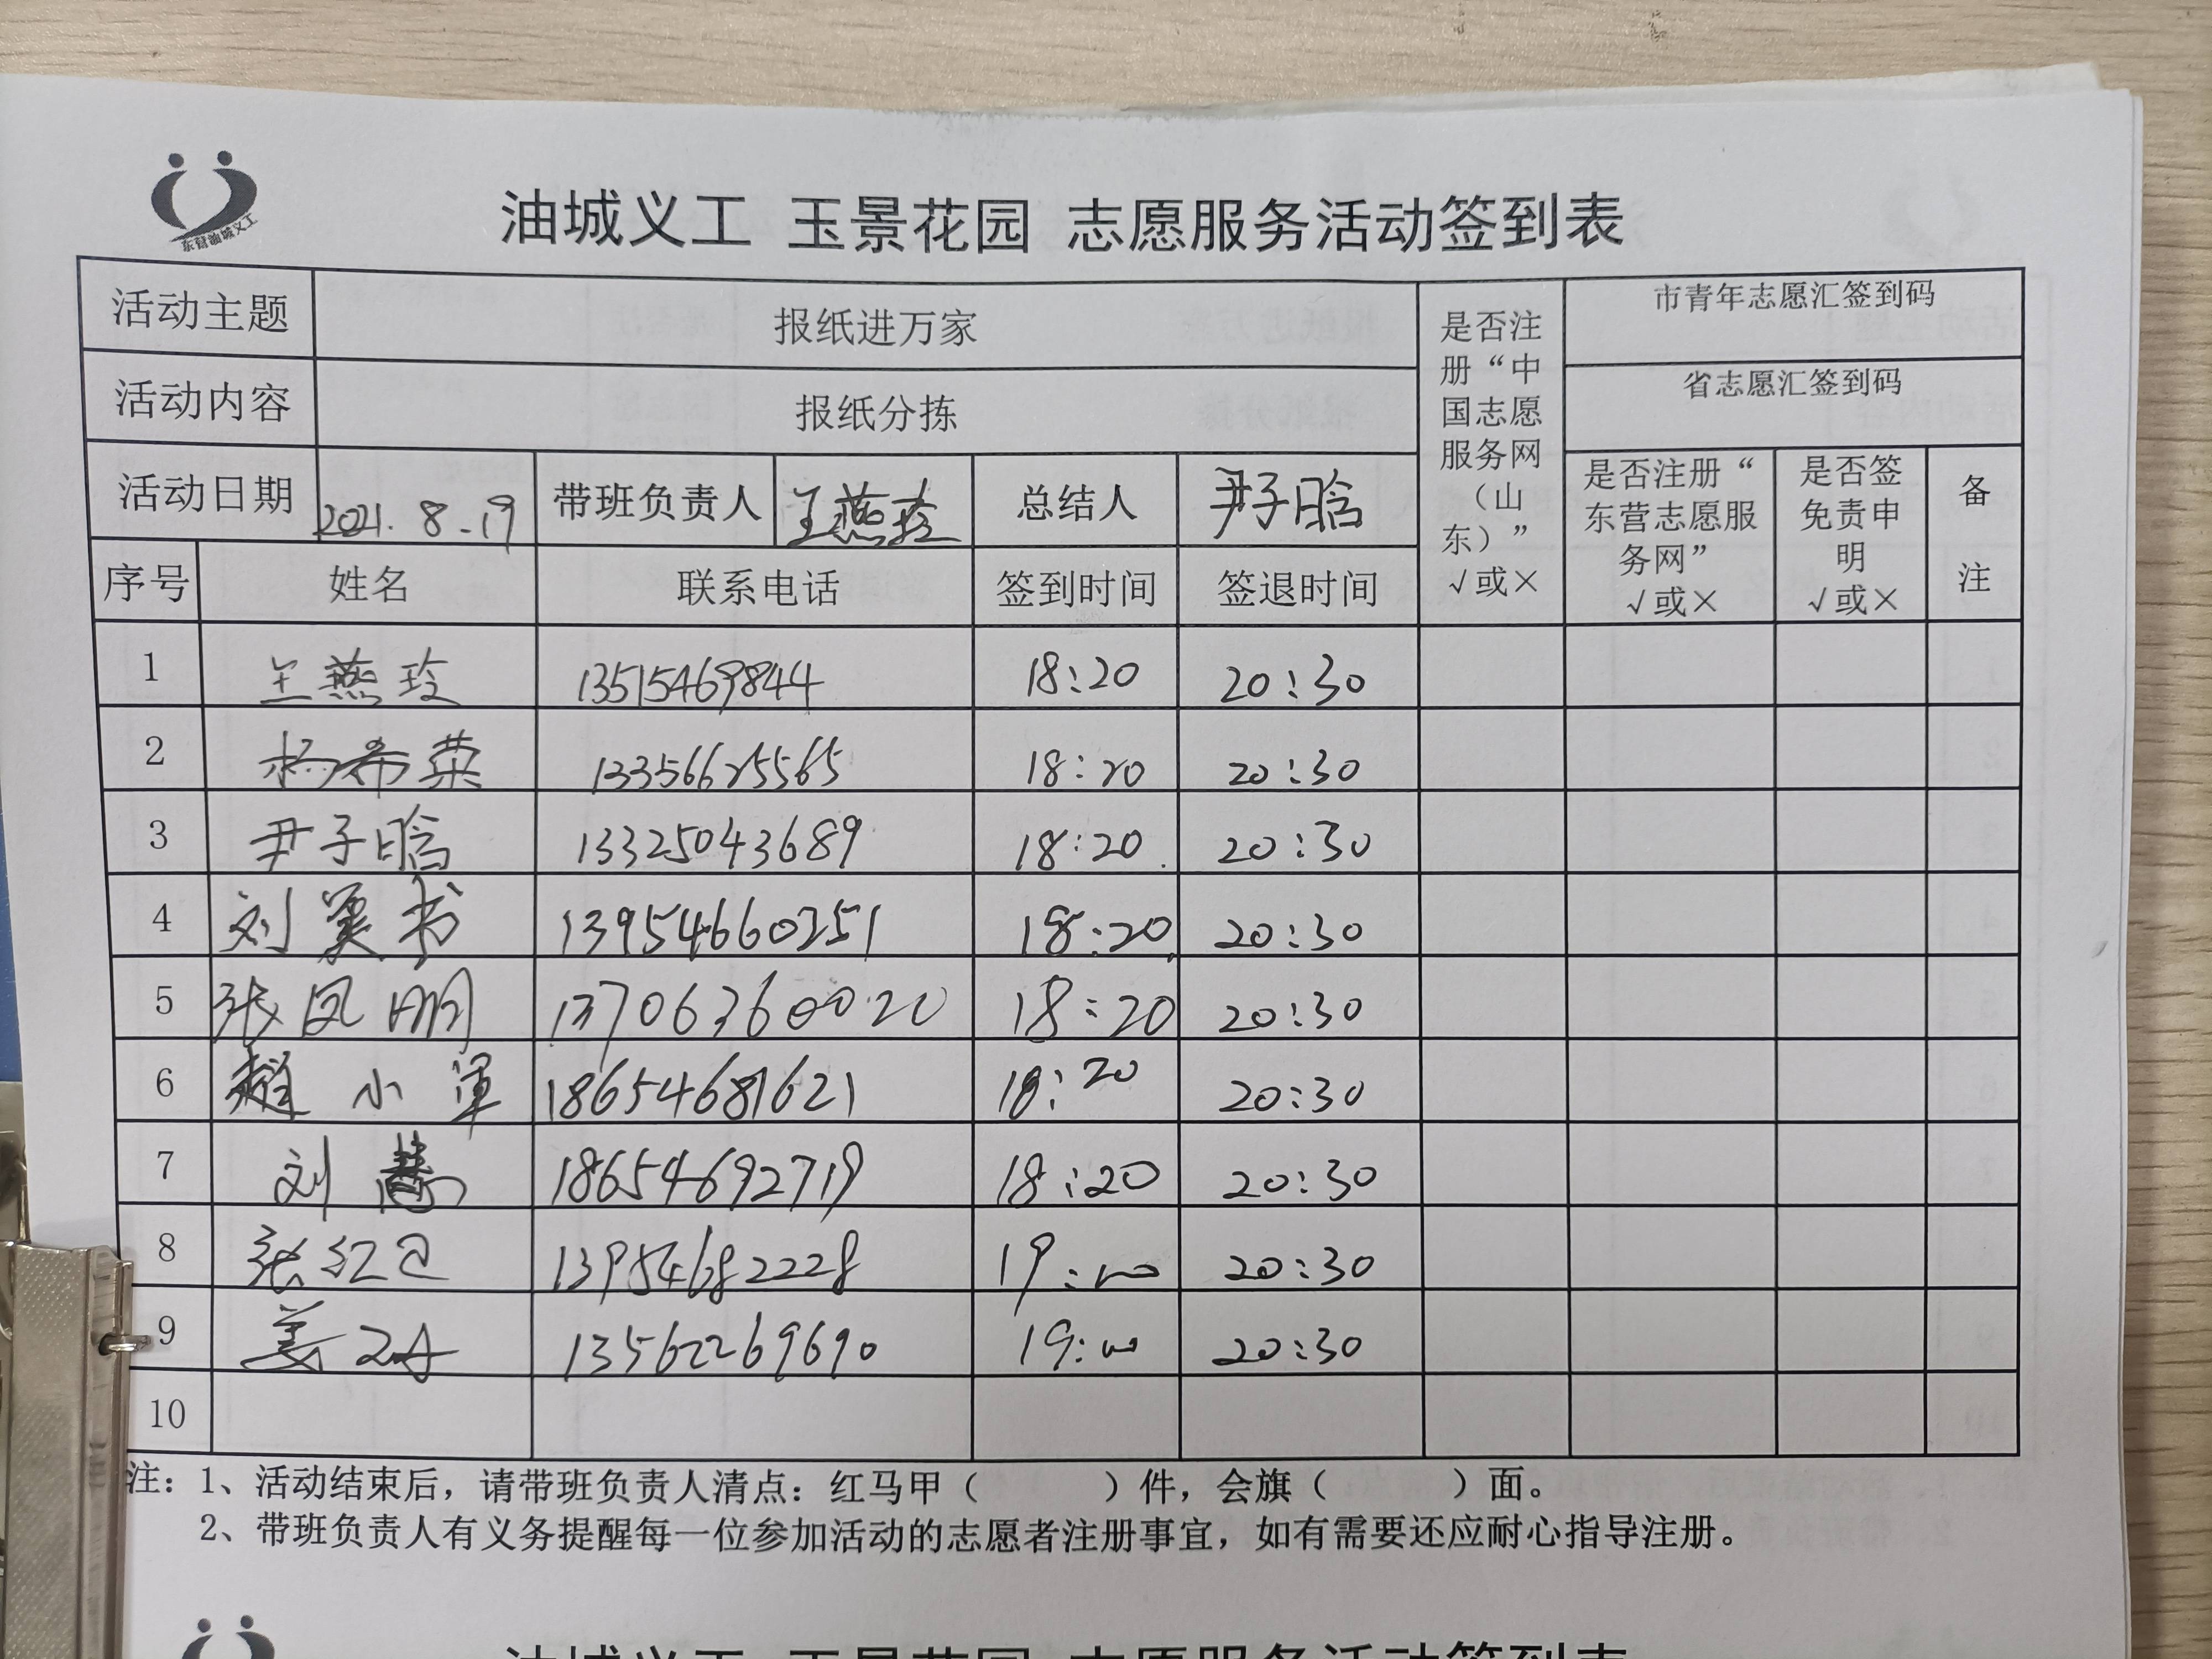 东营油城义工
油城义工 玉景花园 志愿服务活动签到表
活动主题 报纸进万家 是否注册“中国志愿服务网（山东）” √或× 市青年志愿汇签到码
活动内容 报纸分拣 省志愿汇签到码
活动日期 2021.8.19 带班负责人 王燕玲 总结人 尹子晗 是否注册“东营志愿服务网” √或× 是否签免责申明 √或× 备注
序号 姓名 联系电话 签到时间 签退时间
1 王燕玲 13515469844 18:20 20:30
2 杨希荣 13356625565 18:20 20:30
3 尹子晗 13325043689 18:20 20:30
4 刘 书 13954660351 18:20 20:30
5 张凤明 13706360020 18:20 20:30
6 赵小军 18654681621 18:20 20:30
7 刘慧 18654692719 18:20 20:30
8 张红 13954682228 19:00 20:30
9 姜 13562269690 19:00 20:30
10
注：1、活动结束后，请带班负责人清点：红马甲（ ）件，会旗（ ）面。
2、带班负责人有义务提醒每一位参加活动的志愿者注册事宜，如有需要还应耐心指导注册。
油城义工 玉景花园 志愿服务活动签到表